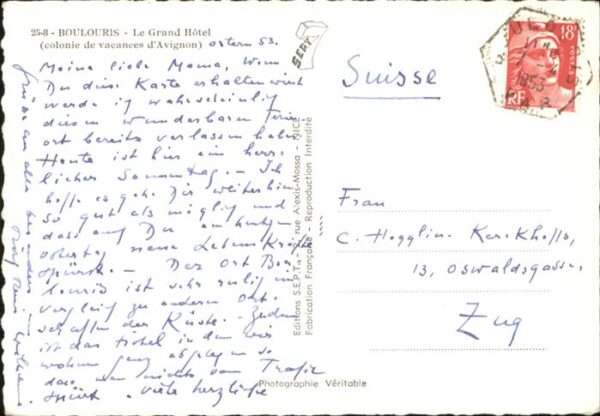 25-8 - BOULOURIS - Le Grand Hôtel
(colonie de vacances d'Avignon)
Ostern 53.
Meine liebe Mama, Wenn
Du diese Karte erhalten wirst
werde ich wahrscheinlich
diesen wunderbaren Ferien
ort bereits verlassen haben
Heute ist hier ein herr-
licher Sonnentag - Ich
hoffe es gehe Dir weiterhin
so gut als möglich und
dass auf Du am heutigen
Ostertag neue Lebenskräfte
spürst. - Der Ort Bou-
louris ist sehr ruhig im
Vergleich zu anderen Ort-
schaften der Küste. - Zudem
ist das Hotel in dem wir
wohnen ganz abgelegen so
dass man nichts vom Trafic
spürt. - Viele herzliche
Grüsse an alle
SEPT
Editions S.E.P.T. - rue Alexis-Mossa - NICE
Fabrication Française - Reproduction Interdite
Photographie Véritable
Suisse
18F
RF
1953
Frau
C. Hegglin-Kerckhoffs,
13, Oswaldsgasse,
Zug